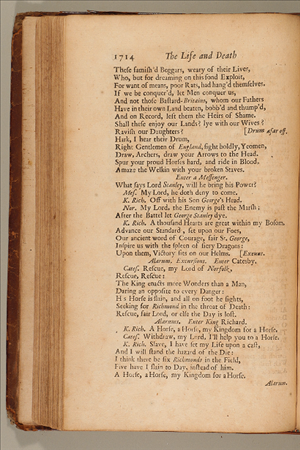 1714 The Life and Death
These famish'd Beggars, weary of their Lives,
Who, but for dreaming on this fond Exploit,
For want of means, poor Rats, had hang'd themselves.
If we be conquer'd, let Men conquer us,
And not those Bastard-Britains, whom our Fathers
Have in their own Land beaten, bobb'd and thump'd,
And on Record, left them the Heirs of Shame.
Shall these enjoy our Lands? lye with our Wives?
Ravish our Daughters? [Drum afar off.
Hark, I hear their Drum,
Right Gentlemen of England, fight boldly, Yeomen,
Draw, Archers, draw your Arrows to the Head.
Spur your proud Horses hard, and ride in Blood.
Amaze the Welkin with your broken Staves.
Enter a Messenger.
What says Lord Stanley, will he bring his Power?
Mes. My Lord, he doth deny to come.
K. Rich. Off with his Son George's Head.
Nor. My Lord, the Enemy is past the Marsh:
After the Battel let George Stanley dye.
K. Rich. A thousand Hearts are great within my Bosom.
Advance our Standard, set upon our Foes,
Our ancient word of Courage, fair St. George,
Inspire us with the spleen of fiery Dragons:
Upon them, Victory sits on our Helms. [Exeunt.
Alarum. Excursions. Enter Catesby.
Cates. Rescue, my Lord of Norfolk,
Rescue, Rescue:
The King enacts more Wonders than a Man,
Daring an opposite to every Danger:
His Horse is slain, and all on foot he fights,
Seeking for Richmond in the throat of Death:
Rescue, fair Lord, or else the Day is lost.
Alarums. Enter King Richard.
K. Rich. A Horse, a Horse, my Kingdom for a Horse.
Cates. Withdraw, my Lord, I'll help you to a Horse.
K. Rich. Slave, I have set my Life upon a cast,
And I will stand the hazard of the Die:
I think there be six Richmonds in the Field,
Five have I slain to Day, instead of him.
A Horse, a Horse, my Kingdom for a Horse.
Alarum.